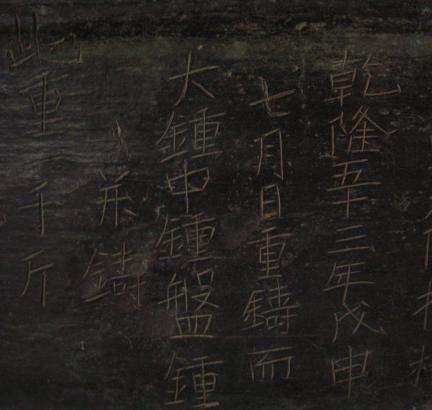 乾隆五十三年戊申
七月日重鑄而
大鍾中鍾盤鍾
八并鑄
此重一千斤